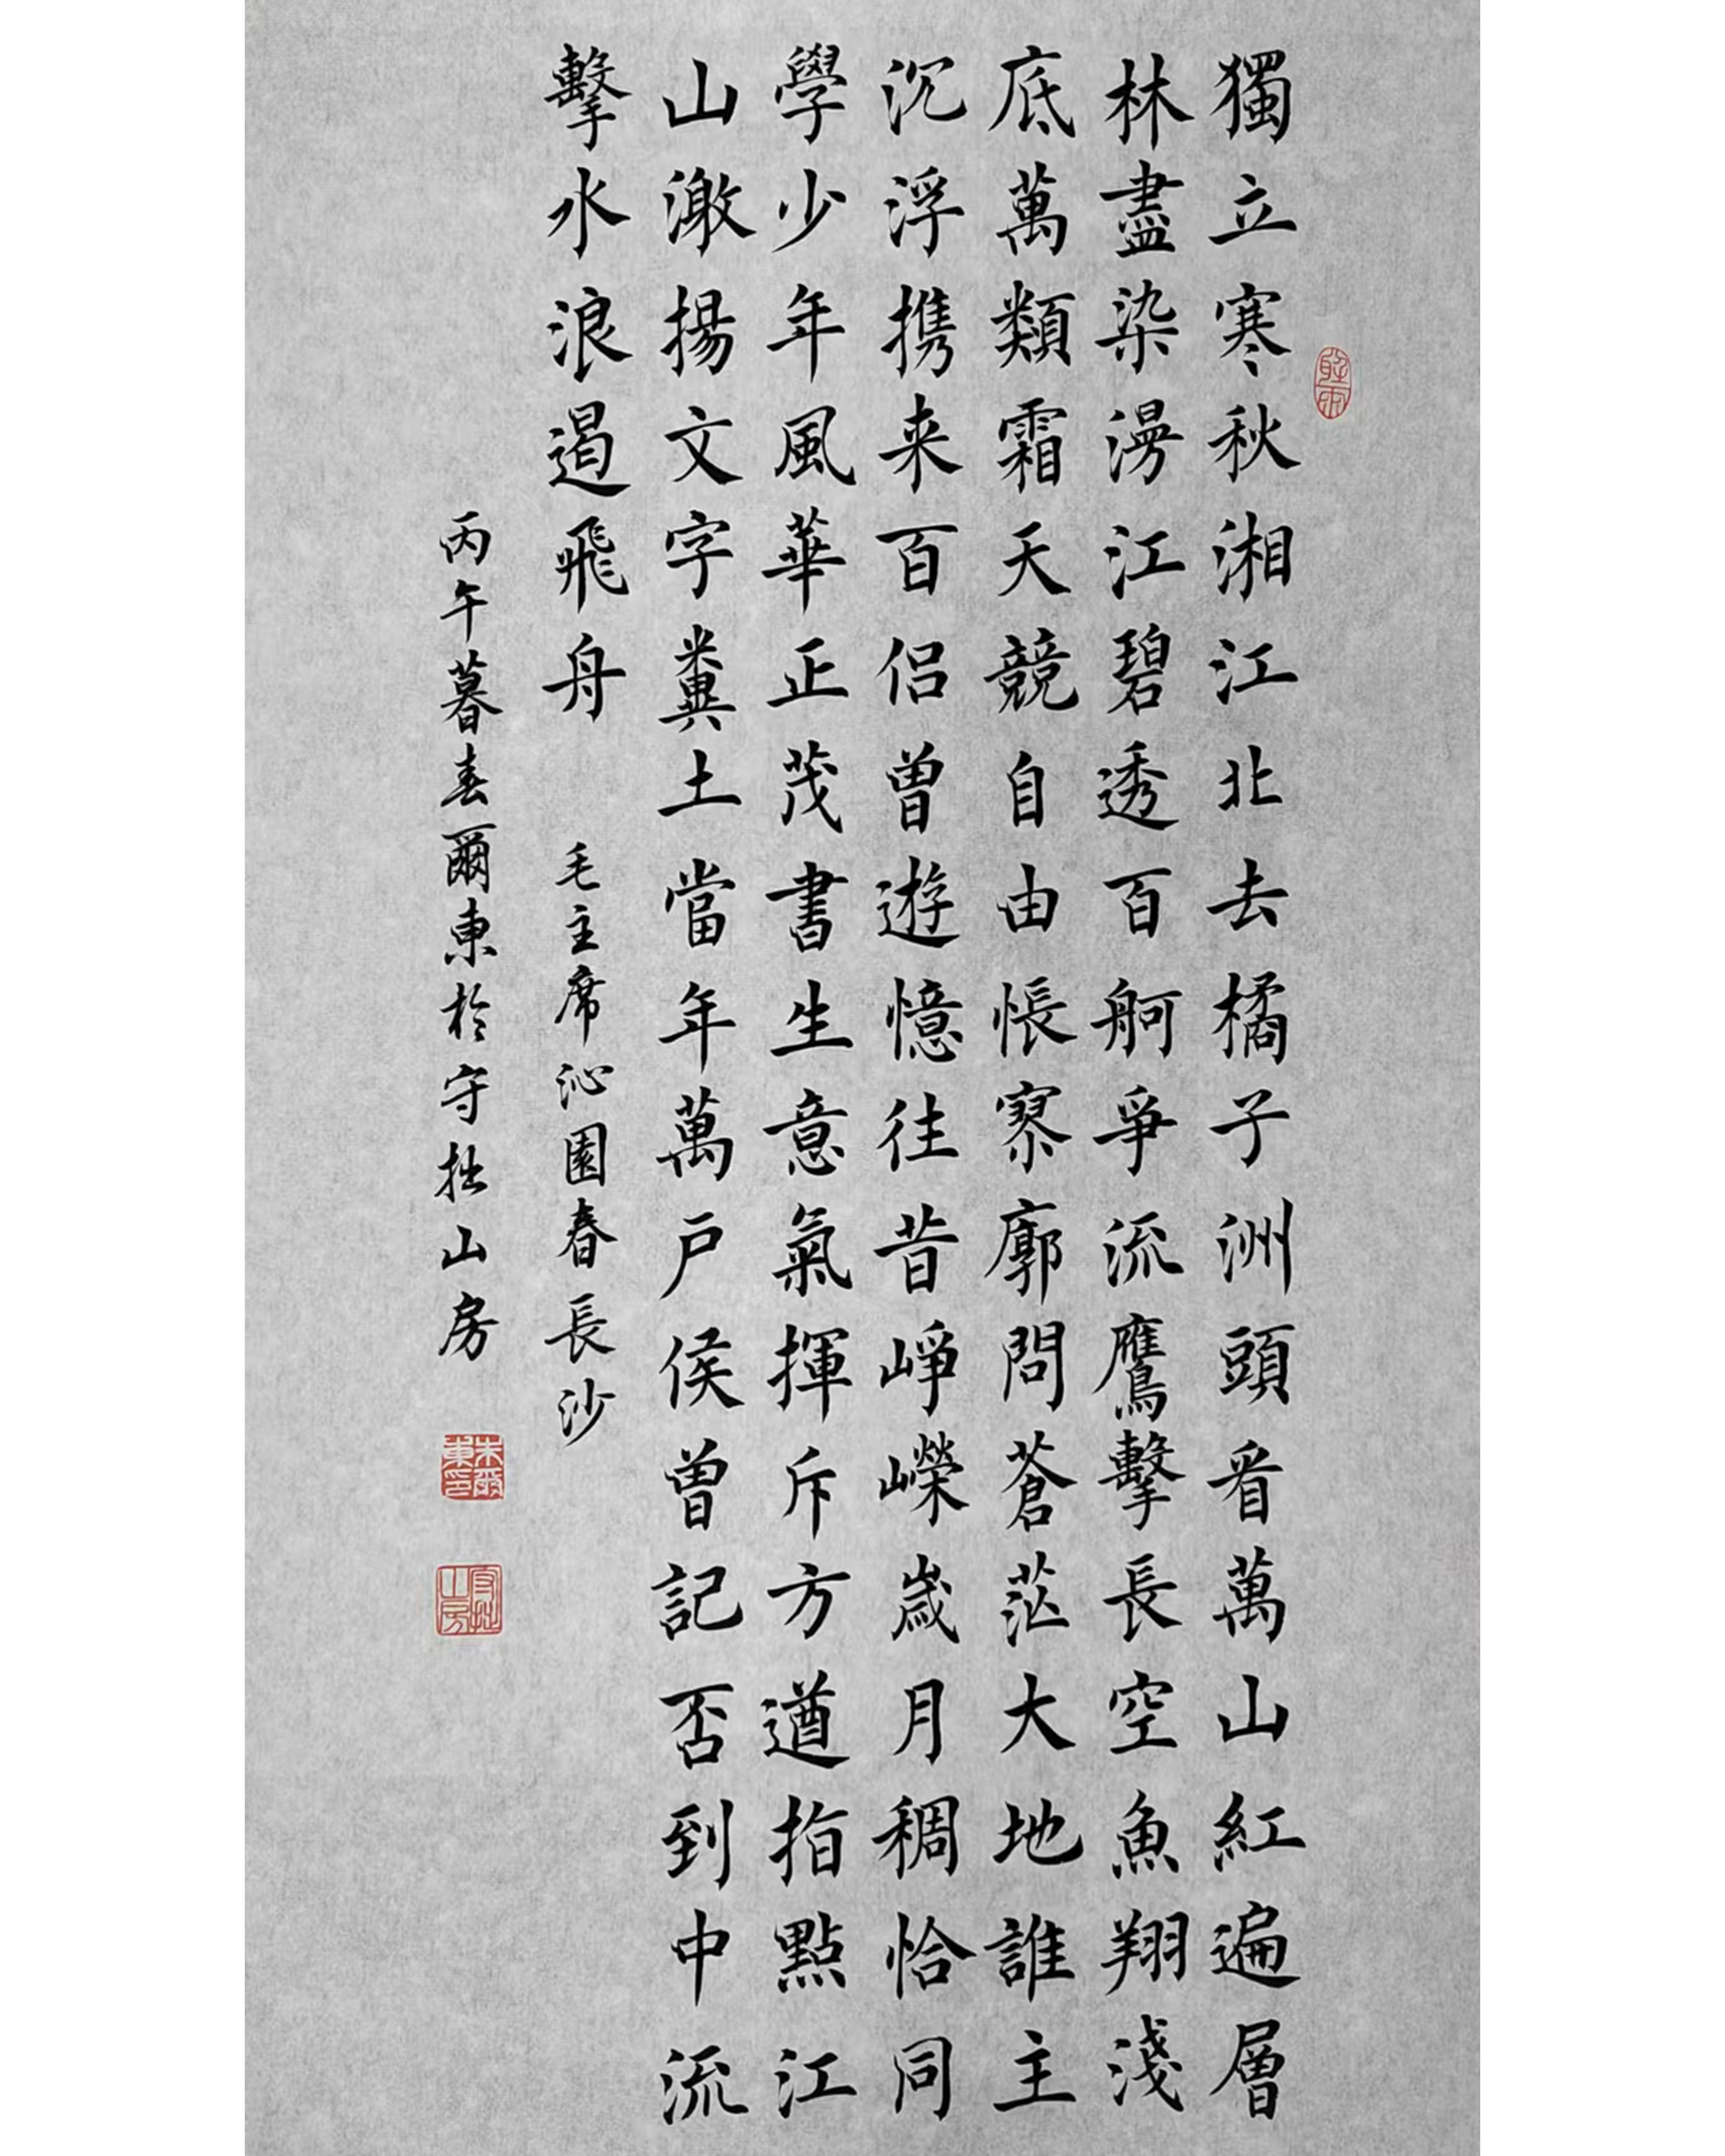 獨立寒秋湘江北去橘子洲頭看萬山紅遍層
林盡染漫江碧透百舸爭流鷹擊長空魚翔淺
底萬類霜天競自由悵寥廓問蒼茫大地誰主
沉浮携来百侣曾遊憶往昔崢嶸歲月稠恰同
學少年風華正茂書生意氣揮斥方遒指點江
山激揚文字糞土當年萬戶侯曾記否到中流
擊水浪遏飛舟
毛主席沁園春長沙
丙午暮春爾東於守拙山房
朱爾東印
守拙山房